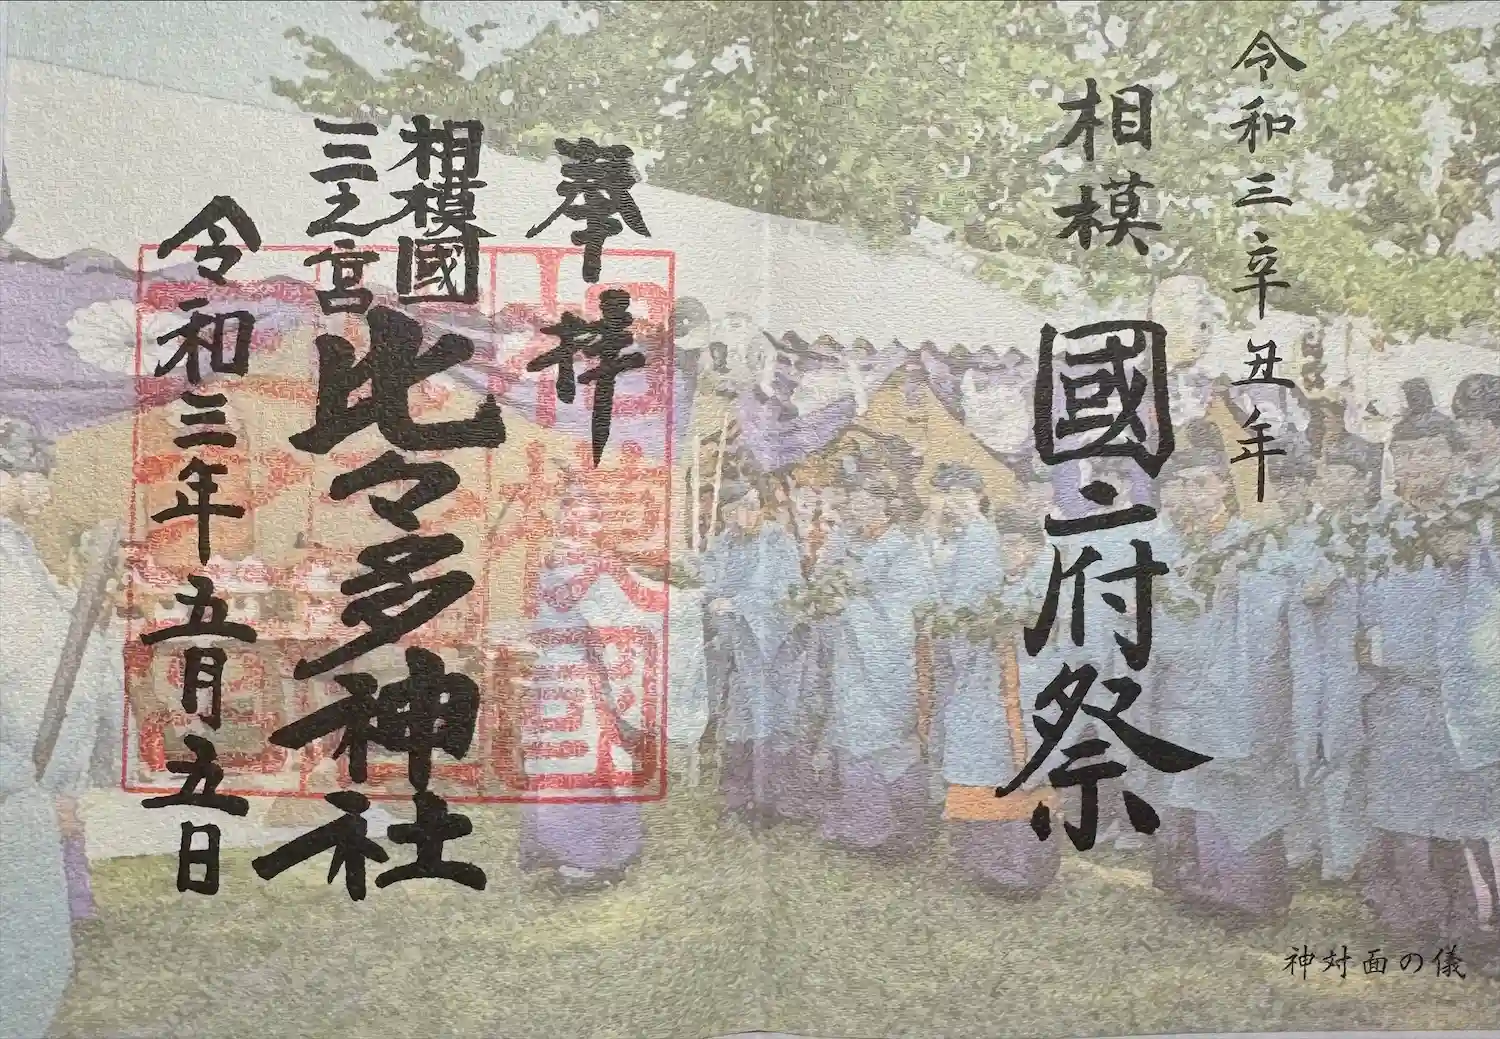 令和三辛丑年
相模 國府祭
神対面の儀
奉拝
相模國
三之宮
比々多神社
令和三年五月五日